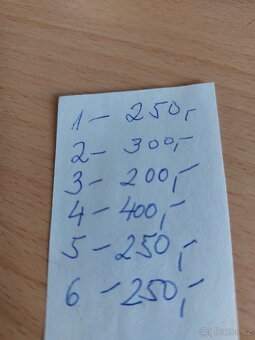 1 - 250,-
2 - 300,-
3 - 200,-
4 - 400,-
5 - 250,-
6 - 250,-